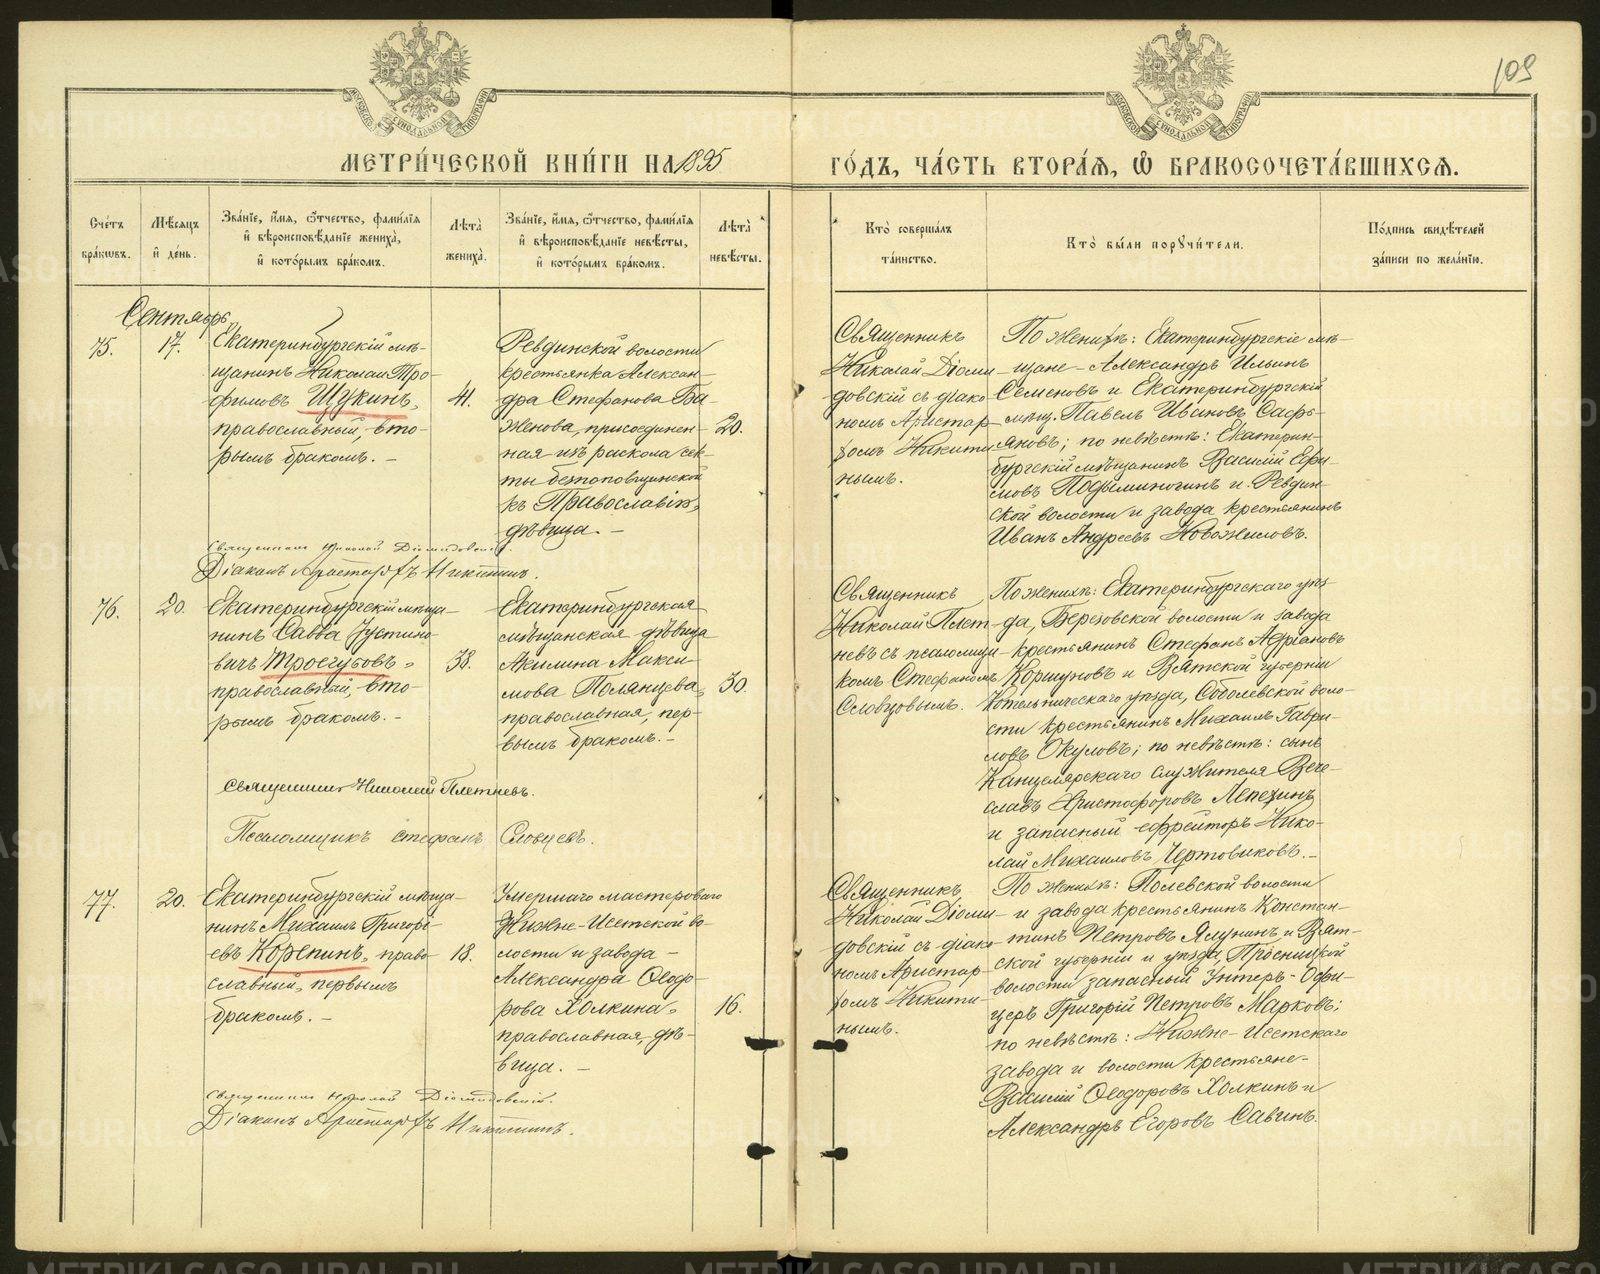 109
МОСКОВСКОЙ СѴНОДАЛЬНОЙ ТИПОГРАФІИ
МОСКОВСКОЙ СѴНОДАЛЬНОЙ ТИПОГРАФІИ
МЕТРИ́ЧЕСКОЙ КНИ́ГИ НА 1895
ГО́ДЪ, ЧА́СТЬ ВТОРА́Ѧ, Ѽ БРАКОСОЧЕТА́ВШИХСѦ.
Сче́тъ бра́кѡвъ.
Мѣ́сяцъ и҆ де́нь.
Зва́нїе, и҆́мѧ, ѻ҆́тчество, фами́лїѧ
и҆ вѣроисповѣ́данїе жениха̀,
и҆ кото́рымъ бра́комъ.
Лѣта̀ жениха̀.
Зва́нїе, и҆́мѧ, ѻ҆́тчество, фами́лїѧ
и҆ вѣроисповѣ́данїе невѣ́сты,
и҆ кото́рымъ бра́комъ.
Лѣта̀ невѣ́сты.
Кто̀ соверша́лъ та́инство.
Кто̀ бы́ли порꙋчи́тели.
По́дпись свидѣ́телей за́писи по жела́нїю.
Сентябрь
75.
17.
Екатеринбургскій мѣ-
щанинъ Николай Тро-
фимовъ Щукинъ,
православный, вто-
рымъ бракомъ. –
41.
Ревдинской волости
крестьянка Алексан-
дра Стефанова Ба-
женова, присоединен-
ная изъ раскола сек-
ты безпоповщинской
къ Православію,
дѣвица. –
20.
Священникъ
Николай Діоми-
довскій съ діако-
номъ Аристар-
хомъ Никити-
нымъ.
По женихѣ: Екатеринбургскіе мѣ-
щане – Александръ Ильинъ
Семеновъ и Екатеринбургскій
мѣщ. Павелъ Ивановъ Сафь-
яновъ; по невѣстѣ: Екатерин-
бургскій мѣщанинъ Василій Ефи-
мовъ Подыминогинъ и Ревдин-
ской волости и завода крестьянинъ
Иванъ Андреевъ Новожиловъ.
Священникъ Николай Діомидовскій.
Діаконъ Аристархъ Никитинъ.
76.
20.
Екатеринбургскій мѣща-
нинъ Савва Іустино-
вичъ Троегубовъ,
православный, вто-
рымъ бракомъ. –
38.
Екатеринбургская
мѣщанская дѣвица
Акилина Макси-
мова Полянцева,
православная, пер-
вымъ бракомъ. –
30.
Священникъ
Николай Плет-
невъ съ псаломщи-
комъ Стефаномъ
Словцовымъ.
По женихѣ: Екатеринбургскаго уѣз-
да, Березовской волости и завода
крестьянинъ Стефанъ Адріановъ
Коршуновъ и Вятской губерніи
Котельническаго уѣзда, Соболевской воло-
сти крестьянинъ Михаилъ Гаври-
ловъ Окуловъ; по невѣстѣ: сынъ
Канцелярскаго служителя Вяче-
славъ Христофоровъ Лепехинъ
и запасный ефрейторъ Нико-
лай Михаиловъ Чертовиковъ. –
Священникъ Николай Плетневъ.
Псаломщикъ Стефанъ Словцевъ.
77.
20.
Екатеринбургскій мѣща-
нинъ Михаилъ Григорь-
евъ Корепинъ, право-
славный, первымъ
бракомъ. –
18.
Умершаго мастероваго
Нижне-Исетской во-
лости и завода –
Александра Ѳеодо-
рова Холкина,
православная, дѣ-
вица. –
16.
Священникъ
Николай Діоми-
довскій съ діако-
номъ Аристар-
хомъ Никити-
нымъ.
По женихѣ: Полевской волости
и завода крестьянинъ Констан-
тинъ Петровъ Ялунинъ и Вят-
ской губерніи и уѣзда, Просницкой
волости запасный Унтеръ-Офи-
церъ Григорій Петровъ Марковъ;
по невѣстѣ: Нижне-Исетскаго
завода и волости крестьяне –
Василій Ѳеодоровъ Холкинъ и
Александръ Егоровъ Савинъ.
Священникъ Николай Діомидовскій.
Діаконъ Аристархъ Никитинъ.
METRIKI.GASO-URAL.RU